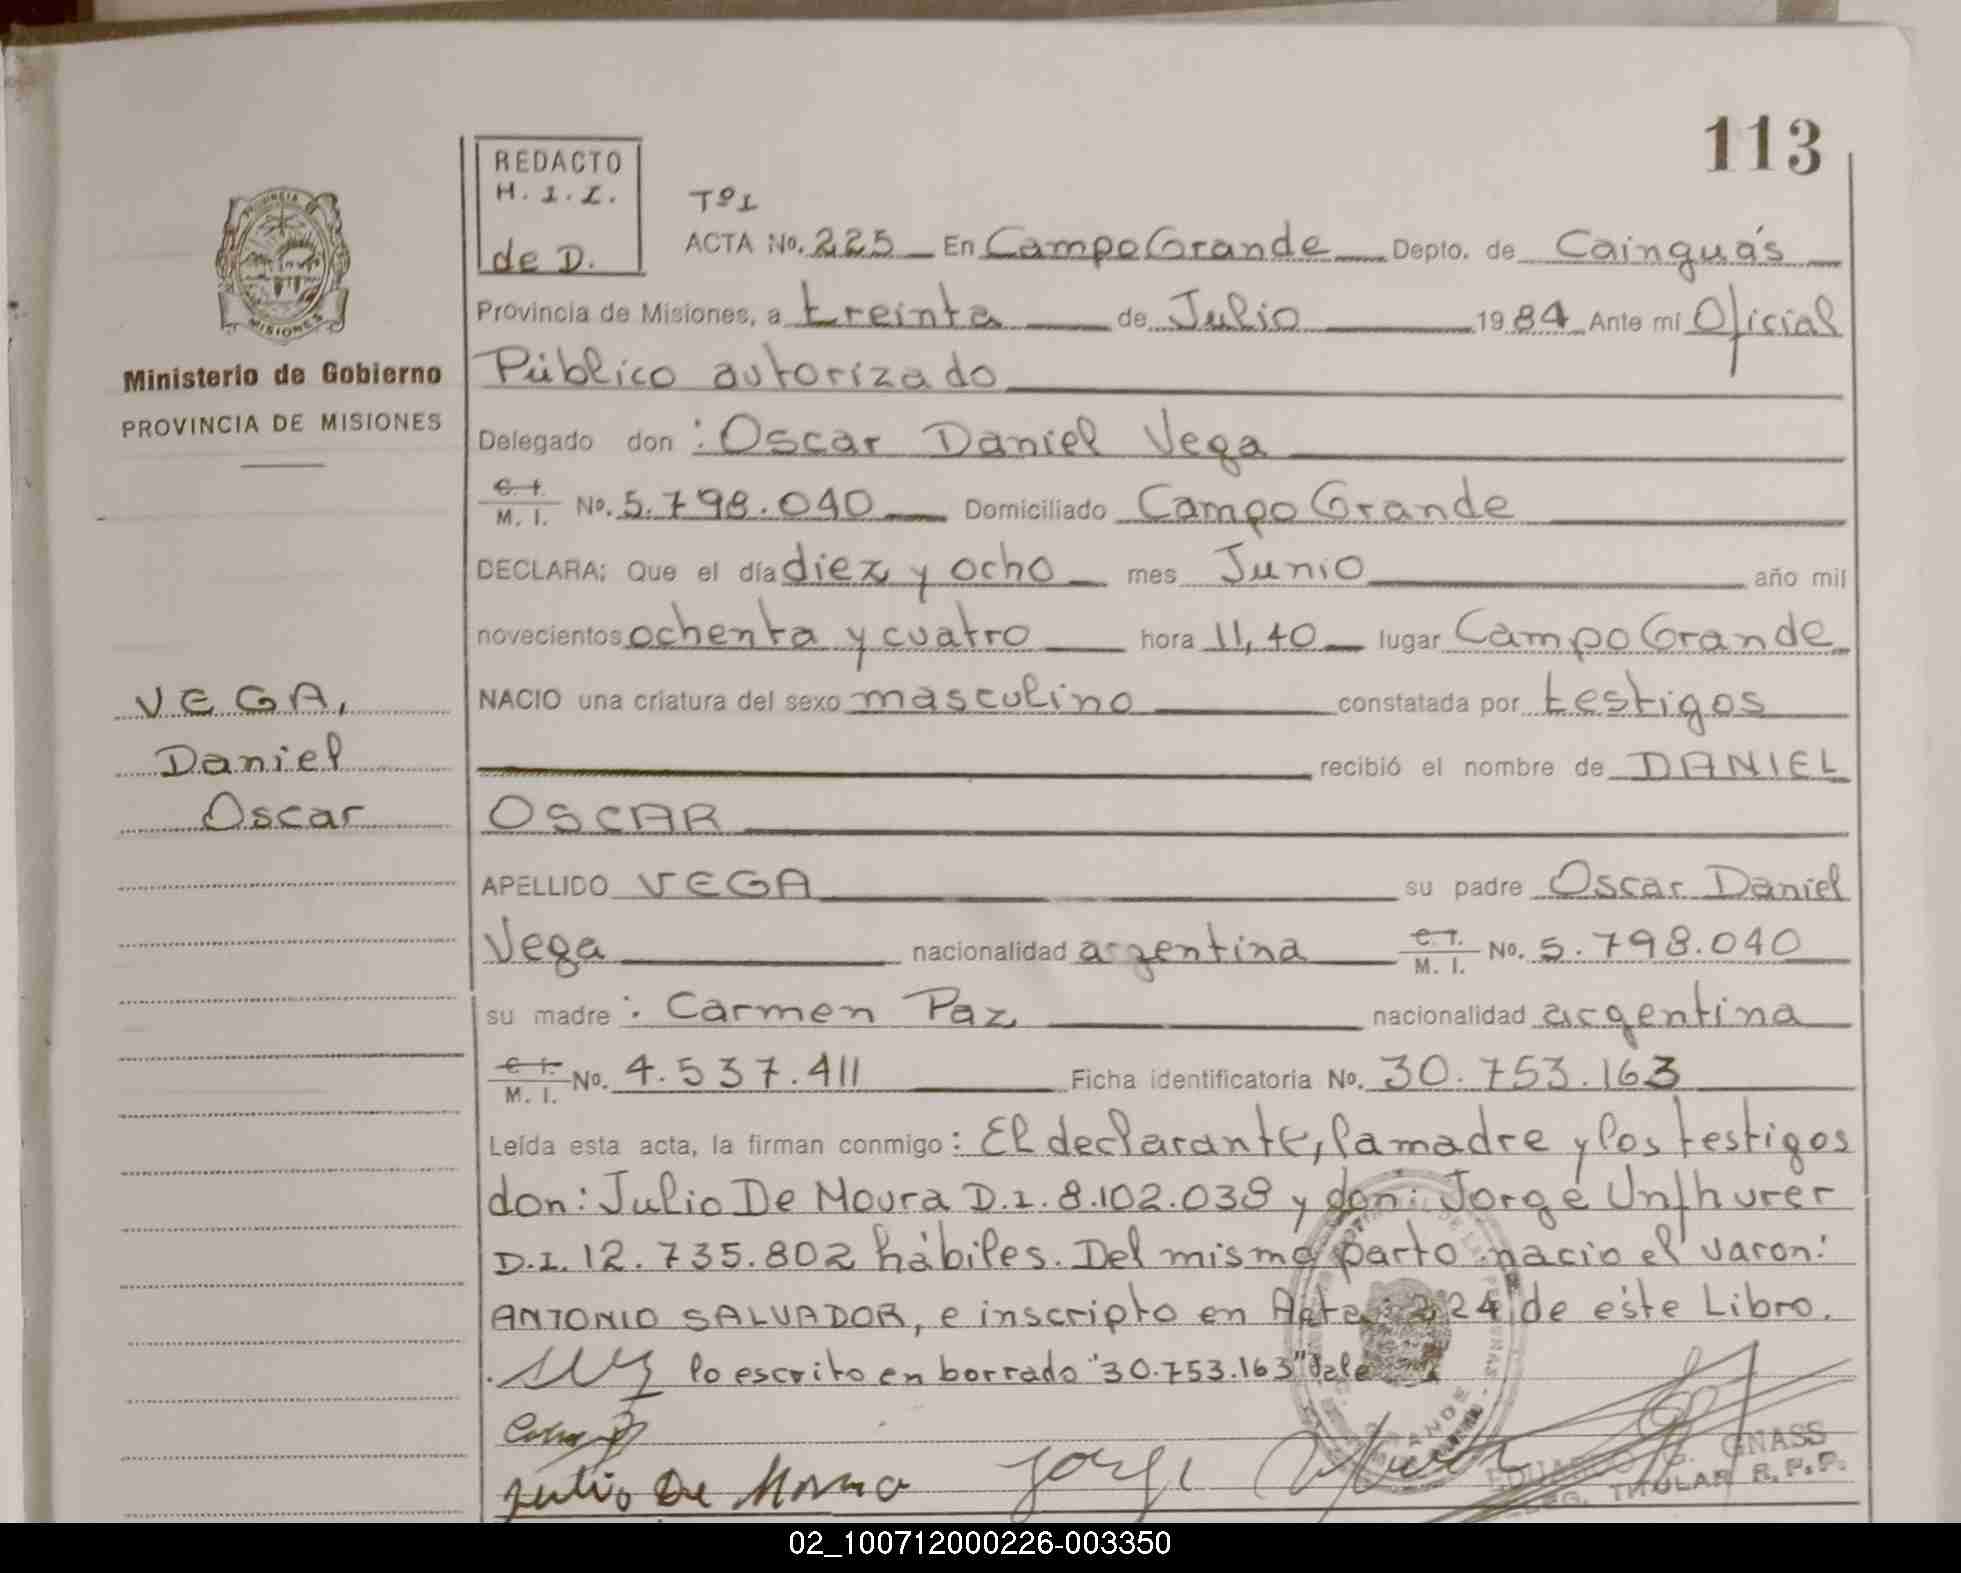 113
REDACTO
H. I. I.
de D.
Tº I
ACTA No. 225 En Campo Grande Depto. de Cainguás
Provincia de Misiones, a treinta de Julio 1984 Ante mí Oficial
Público autorizado
Delegado don : Oscar Daniel Vega
C. I.
M. I. No. 5.798.040 Domiciliado Campo Grande
DECLARA: Que el día diez y ocho mes Junio año mil
novecientos ochenta y cuatro hora 11,40 lugar Campo Grande
NACIO una criatura del sexo masculino constatada por testigos
recibió el nombre de DANIEL
OSCAR
APELLIDO VEGA su padre Oscar Daniel
Vega nacionalidad argentina C. I.
M. I. No. 5.798.040
su madre : Carmen Paz nacionalidad argentina
C. I.
M. I. No. 4.537.411 Ficha identificatoria No. 30.753.163
Leída esta acta, la firman conmigo : El declarante, la madre y los testigos
don: Julio De Moura D.I. 8.102.039 y don: Jorge Unfhurer
D.I. 12.735.802 hábiles. Del mismo parto nacio el varon:
ANTONIO SALVADOR, e inscripto en Acta 224 de éste Libro.
lo escrito en borrado "30.753.163" Vale
Julio De Moura Jorge
GNASS
TITULAR R.P.P.
PROVINCIA DE
MISIONES
Ministerio de Gobierno
PROVINCIA DE MISIONES
VEGA,
Daniel
Oscar
02_100712000226-003350